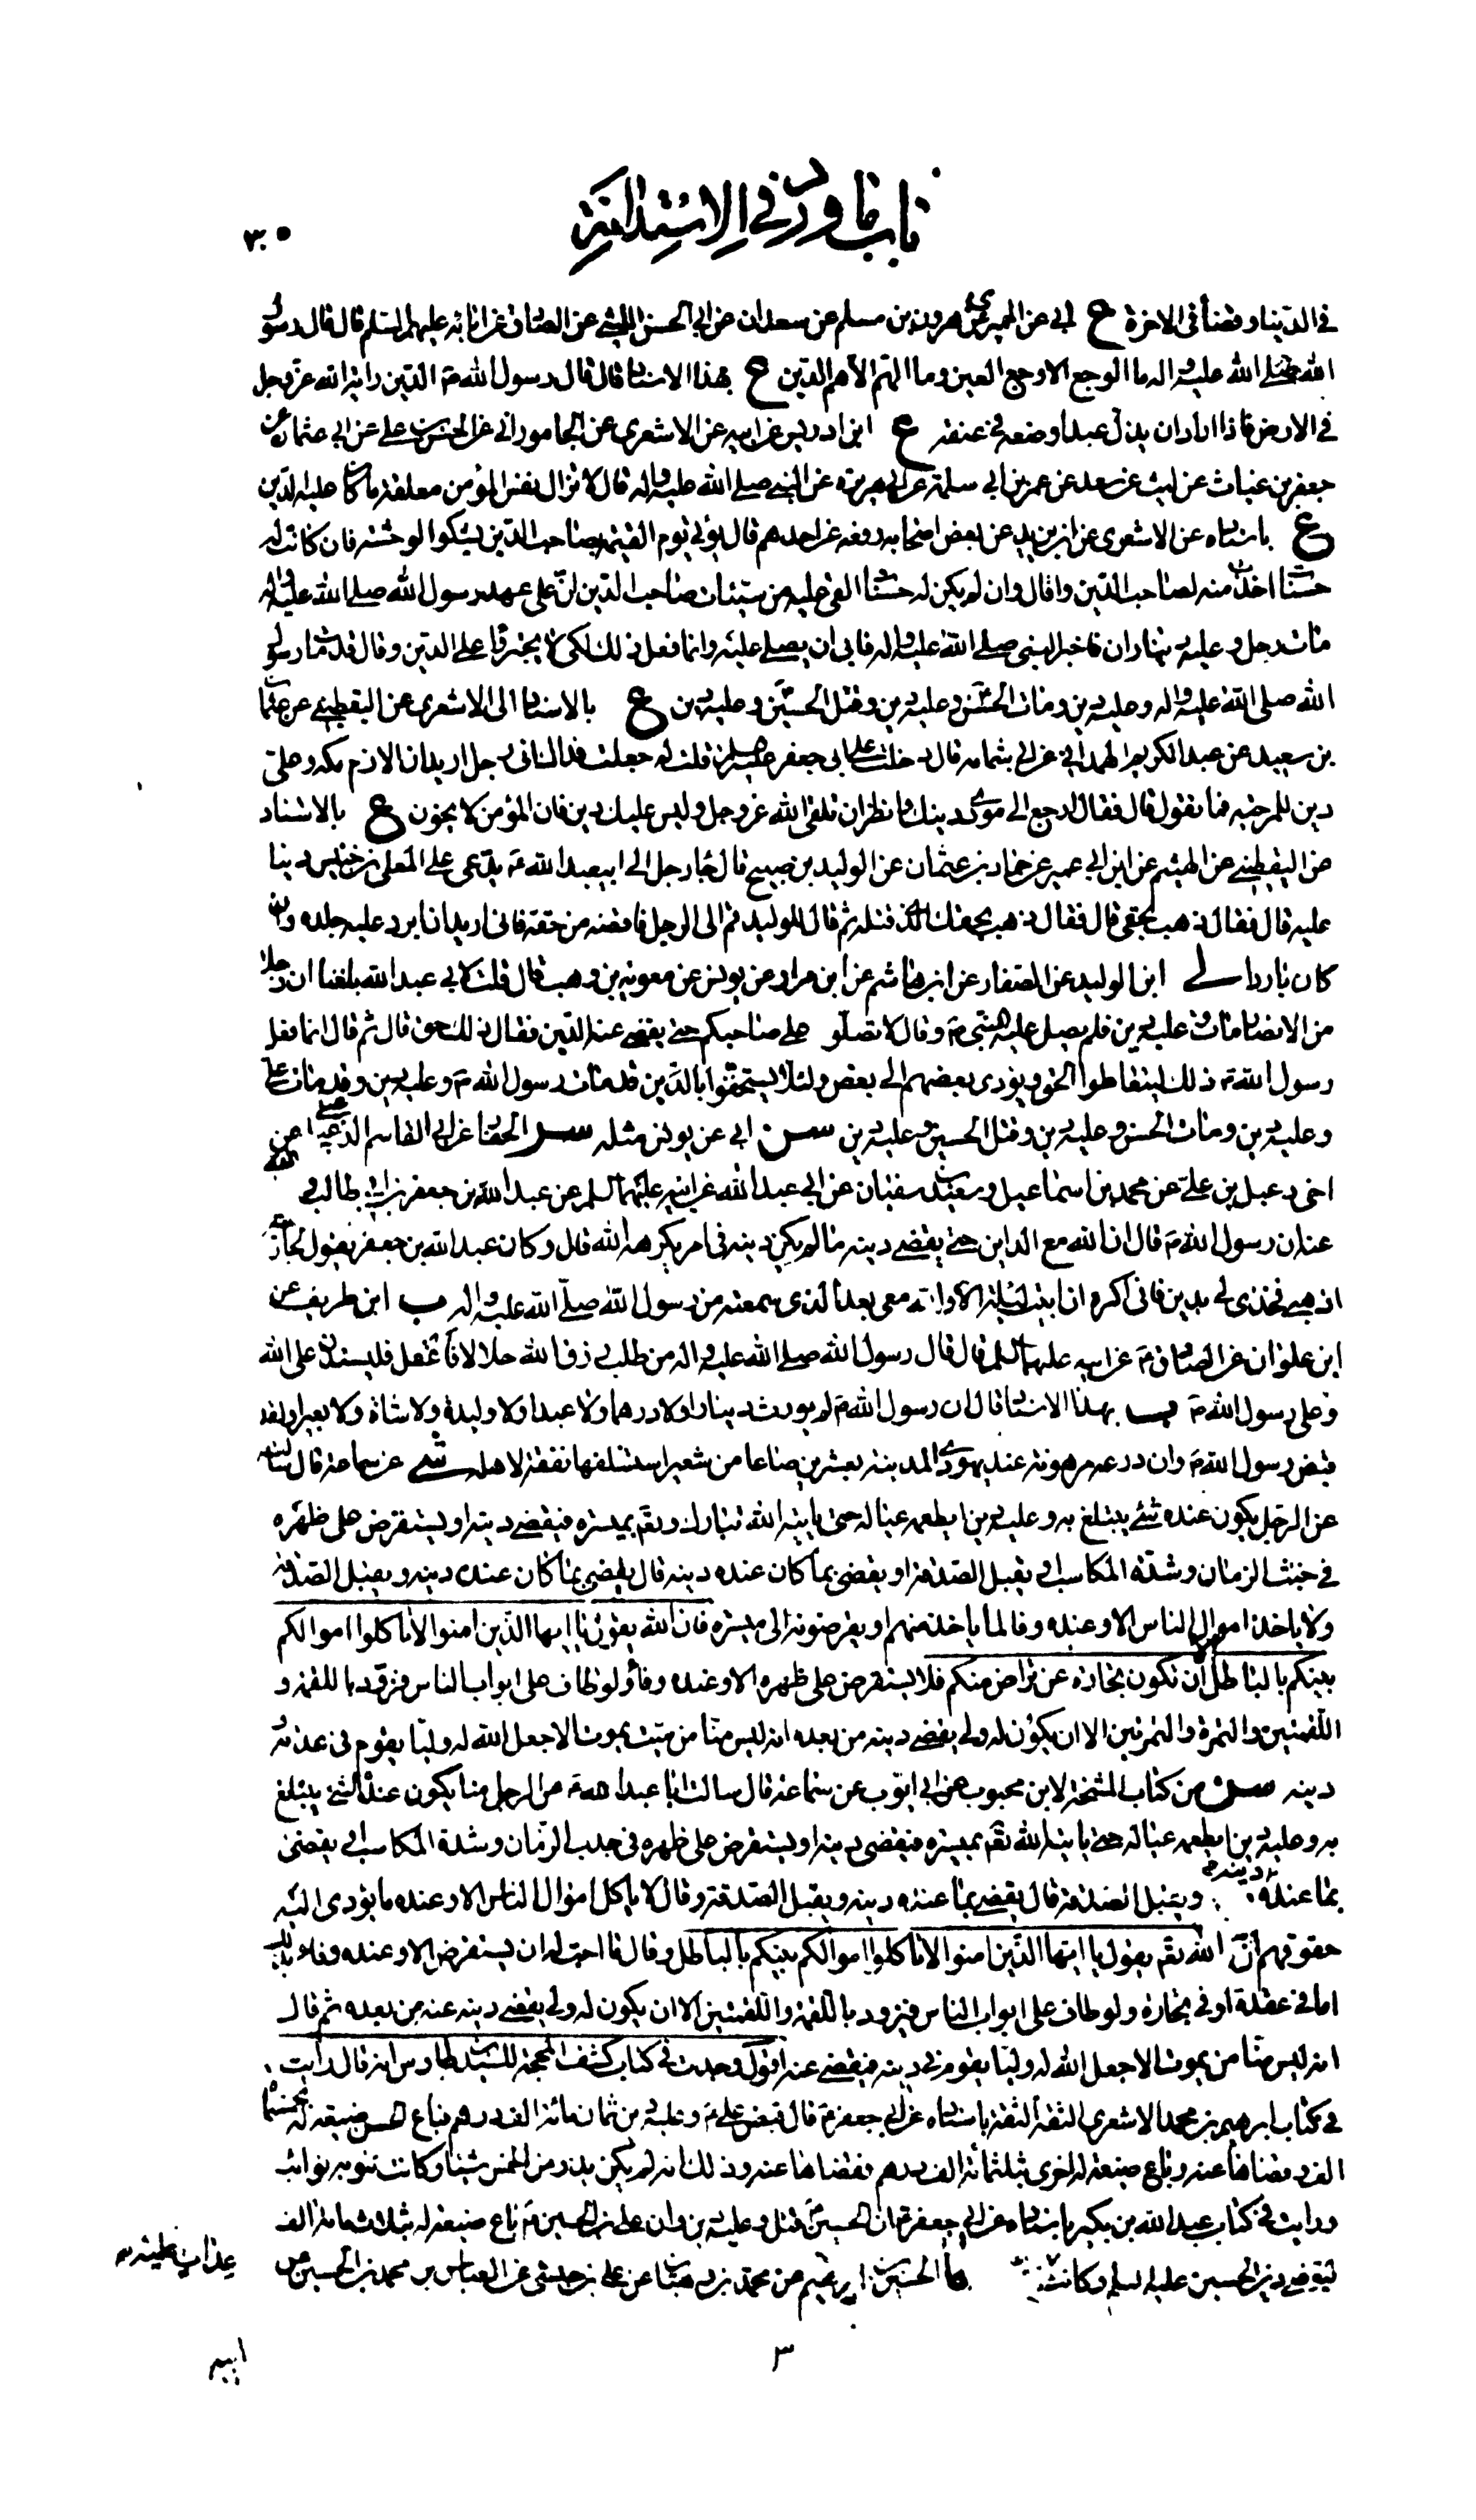 باب ما ورد في الاستدانة
٣٠
في الدنيا وقضاء في الاخرة ع ابي عن الحميري عن هرون بن مسلم عن سعدان عن ابي الحسن الليثي عن الصادق عن ابائه عليهم السلم قال قال رسول
الله صلى الله عليه واله ما الوجع الا وجع العين وما الهم الا هم الدين ع بهذا الاسناد قال قال رسول الله ص الدين راية الله عز وجل
في الارض فاذا اراد ان يذل عبدا وضعه في عنقه ع ابن ادريس عن ابيه عن الاشعري عن الجاموراني عن الحسن بن علي عن ابي عثمان عن
جعفر بن غياث عن ليث عن سعد عن عمر بن ابي سلمة عن ابي هريرة عن النبي صلى الله عليه واله قال لا تزال نفس المؤمن معلقة ما كان عليه الدين
ع باسناده عن الاشعري عن ابن يزيد عن بعض اصحابه رفعه عن احدهم قال يؤتى يوم القيمة بصاحب الدين يشكو الوحشة فان كانت له
حسنات اخذت منه لصاحب الدين وقال وان لم يكن له حسنات القي عليه من سيئات صاحب الدين ان على عهد رسول الله صلى الله عليه واله
مات رجل وعليه ديناران فاخبر النبي صلى الله عليه واله فابى ان يصلي عليه وانما فعل ذلك لكي لا يجترؤا على الدين وقال قد مات رسول
الله صلى الله عليه واله وعليه دين ومات الحسن وعليه دين وقتل الحسين وعليه دين ع بالاسناد الى الاشعري عن اليقطيني عن عثمان
بن سعيد عن عبد الكريم الهمداني عن ابي ثمامه قال دخلت على ابي جعفر عليه السلم قلت له جعلت فداك اني رجل اريد ان الازم مكه وعلي
دين للمرجئه فما تقول قال فقال ارجع الى مؤدى دينك وانظر ان تلقى الله عز وجل وليس عليك دين فان المؤمن لا يخون ع بالاسناد
عن اليقطيني عن الهيثم عن ابن ابي عمير عن حماد بن عثمان عن الوليد بن صبيح قال جاء رجل الى ابيعبد الله ع يدعي على المعلى بن خنيس دينا
عليه قال فقال ذهب بحقي قال فقال ذهب بحقك الذي قتله ثم قال للوليد قم الى الرجل فاقضه من حقه فاني اريد ان ابرد عليه جلده وان
كان باردا لى ابن الوليد عن الصفار عن ابن هاشم عن ابن مرار عن يونس عن معويه بن وهب قال قلت لابي عبد الله بلغنا ان رجلا
من الانصار مات وعليه دين فلم يصل عليه النبي ص وقال لا تصلوا على صاحبكم حتى يقضى عنه الدين فقال ذلك حق قال ثم قال انما فعل
رسول الله ص ذلك ليتعاطوا الحق ويؤدي بعضهم الى بعض ولئلا يستخفوا بالدين قد مات رسول الله ص وعليه دين وقد مات علي
وعليه دين ومات الحسن وعليه دين وقتل الحسين وعليه دين سن ابي عن يونس مثله سر الحفار عن ابي القاسم الدعبلي عن
اخي دعبل بن علي عن محمد بن اسماعيل وسعيد بن سفيان عن ابي عبد الله عن ابيه عليهما السلم عن عبد الله بن جعفر بن ابي طالب
عنه ان رسول الله ص قال ان الله مع الداين حتى يقضي دينه ما لم يكن دينه في امر يكرهه الله قال وكان عبد الله بن جعفر يقول لخازنه
اذهب فخذ لي بدين فاني اكره ان ابيت ليلة الا والله معي بعد الذي سمعته من رسول الله صلى الله عليه واله ب ابن طريف عن
ابن علوان عن الصادق ع عن ابيه عليهما السلم قال قال رسول الله صلى الله عليه واله من طلب رزق الله حلالا فاغفل فليستدن على الله
وعلى رسول الله ص ب بهذا الاسناد قال ان رسول الله ص لم يورث دينارا ولا درهما ولا عبدا ولا وليدة ولا شاة ولا بعيرا ولقد
قبض رسول الله ص وان درعه مرهونة عند يهودي المدينة بعشرين صاعا من شعير استسلفها نفقة لاهله شى عن سماعة قال سالته
عن الرجل يكون عنده شئ يتبلغ به وعليه دين ايطعمه عياله حتى ياتيه الله تبارك وتعم بميسره فيقضي دينه او يستقرض على ظهره
في خبث الزمان وشدة المكاسب او يقبل الصدقة او يقضي بما كان عنده دينه قال يقضي بما كان عنده دينه ويقبل الصدقه
ولا ياخذ اموال الناس الا وعنده وفاء لما ياخذ منهم او يقرضونه الى ميسره فان الله يقول يا ايها الذين امنوا لا تاكلوا اموالكم
بينكم بالباطل الا ان تكون تجارة عن تراض منكم فلا يستقرض على ظهره الا وعنده وفاء ولو طاف على ابواب الناس فزودوه باللقمة و
اللقمتين والتمرة والتمرتين الا ان يكون له ولي يقضي دينه من بعده انه ليس منا من ميت يموت الا جعل الله له وليا يقوم في عدته
دينه سن من كتاب المشيخة لابن محبوب عن ابي ايوب عن سماعة قال سالت ابا عبد الله ع عن الرجل منا يكون عنده الشئ يتبلغ
به وعليه دين ايطعمه عياله حتى ياتيه الله تعم بميسره فيقضي دينه او يستقرض على ظهره في جدب الزمان وشدة المكاسب او يقضي
بما عنده دينه ويقبل الصدقة قال يقضي بما عنده دينه ويقبل الصدقة وقال لا ياكل اموال الناس الا وعنده ما يؤدي اليهم
حقوقهم ان الله تعم يقول يا ايها الذين امنوا لا تاكلوا اموالكم بينكم بالباطل وقال ما احب له ان يستقرض الا وعنده وفاء بذلك
اما في عقدة او في تجارة ولو طاف على ابواب الناس فيزود باللقمة واللقمتين الا ان يكون له ولي يقضي دينه عنه من بعده ثم قال
انه ليس منا من يموت الا جعل الله له وليا يقوم في دينه فيقضي عنه اقول وجدت في كتاب كشف المحجة للسيد بن طاوس انه قال رايت
في كتاب ابرهيم بن محمد الاشعري الثقة الثقة باسناده عن ابي جعفر ع قال قبض علي ع وعليه دين ثمان مائة الف درهم فباع الحسن ضيعة له بخمسمائة
الف فقضاها عنه وباع ضيعة له اخرى بثلثمائة الف درهم فقضاها عنه وذلك انه لم يكن يذر من الخمس شيئا وكانت تنوبه نوائب
ورايت في كتاب عبد الله بن بكير باسناده عن ابي جعفر ع ان الحسين ع قتل وعليه دين وان علي بن الحسين ع باع ضيعة له بثلاث مائة الف
ليقضي دين الحسين عليه السلم وكانت ما الحسين بن ابرهيم عن محمد بن وهبان عن علي بن حبشي عن العباس بن محمد بن الحسين عن
ابيه
٣